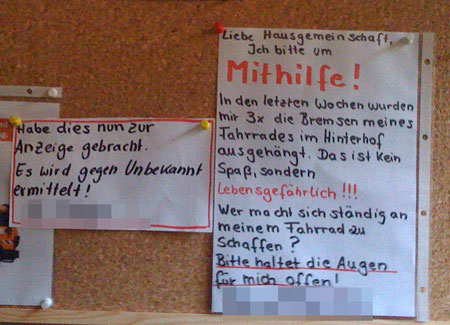 Habe dies nun zur
Anzeige gebracht.
Es wird gegen Unbekannt
ermittelt!
Liebe Hausgemeinschaft,
Ich bitte um
Mithilfe!
In den letzten Wochen wurden
mir 3x die Bremsen meines
Fahrrades im Hinterhof
ausgehängt. Das ist kein
Spaß, sondern
Lebensgefährlich!!!
Wer macht sich ständig an
meinem Fahrrad zu
schaffen?
Bitte haltet die Augen
für mich offen!